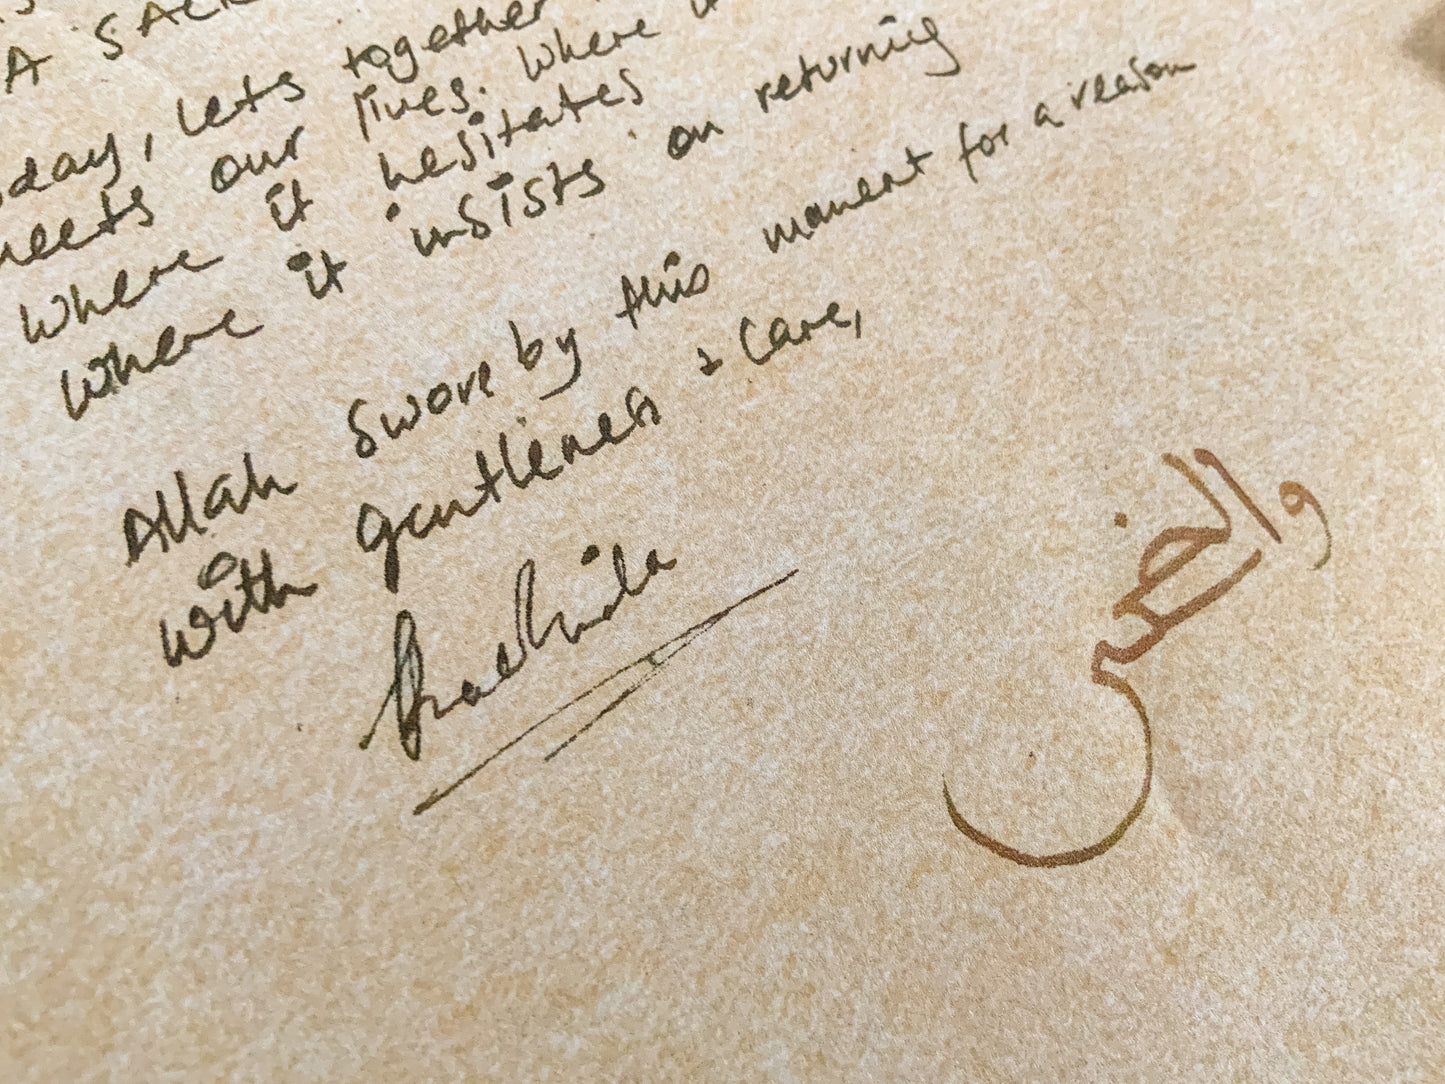 A SACR
day, lets together
meets our lives. Where
where it hesitates
where it insists on returning
Allah swore by this moment for a reason
with gentleness & care,
Rachida
والضحى